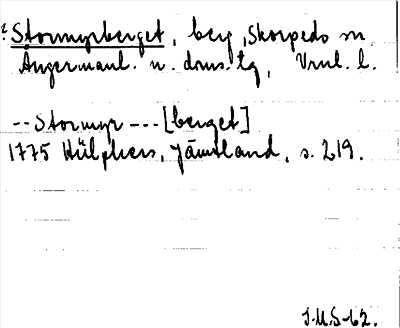 ? Stormyrberget, berg, Skorpeds sn
Ångermanl. n. doms.tg, Vnl. l.
-- Stormyr --- [berget]
1775 Hülphers, Jämtland, s. 219.
J.M.S-62.